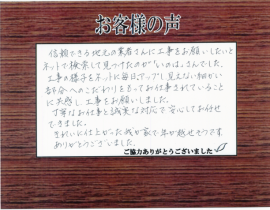 お客様の声
信頼できる地元の業者さんに工事をお願いしたいと
ネットで検索して見つけたのが"いのは"さんでした。
工事の様子をネットに毎日アップし見えない細かい
部分へのこだわりをもってお仕事されていること
に共感し、工事をお願いしました。
丁寧なお仕事と誠実な対応で安心してお任せ
できました。
きれいに仕上がった我が家で年が越せそうです
ありがとうございました。
ご協力ありがとうございました